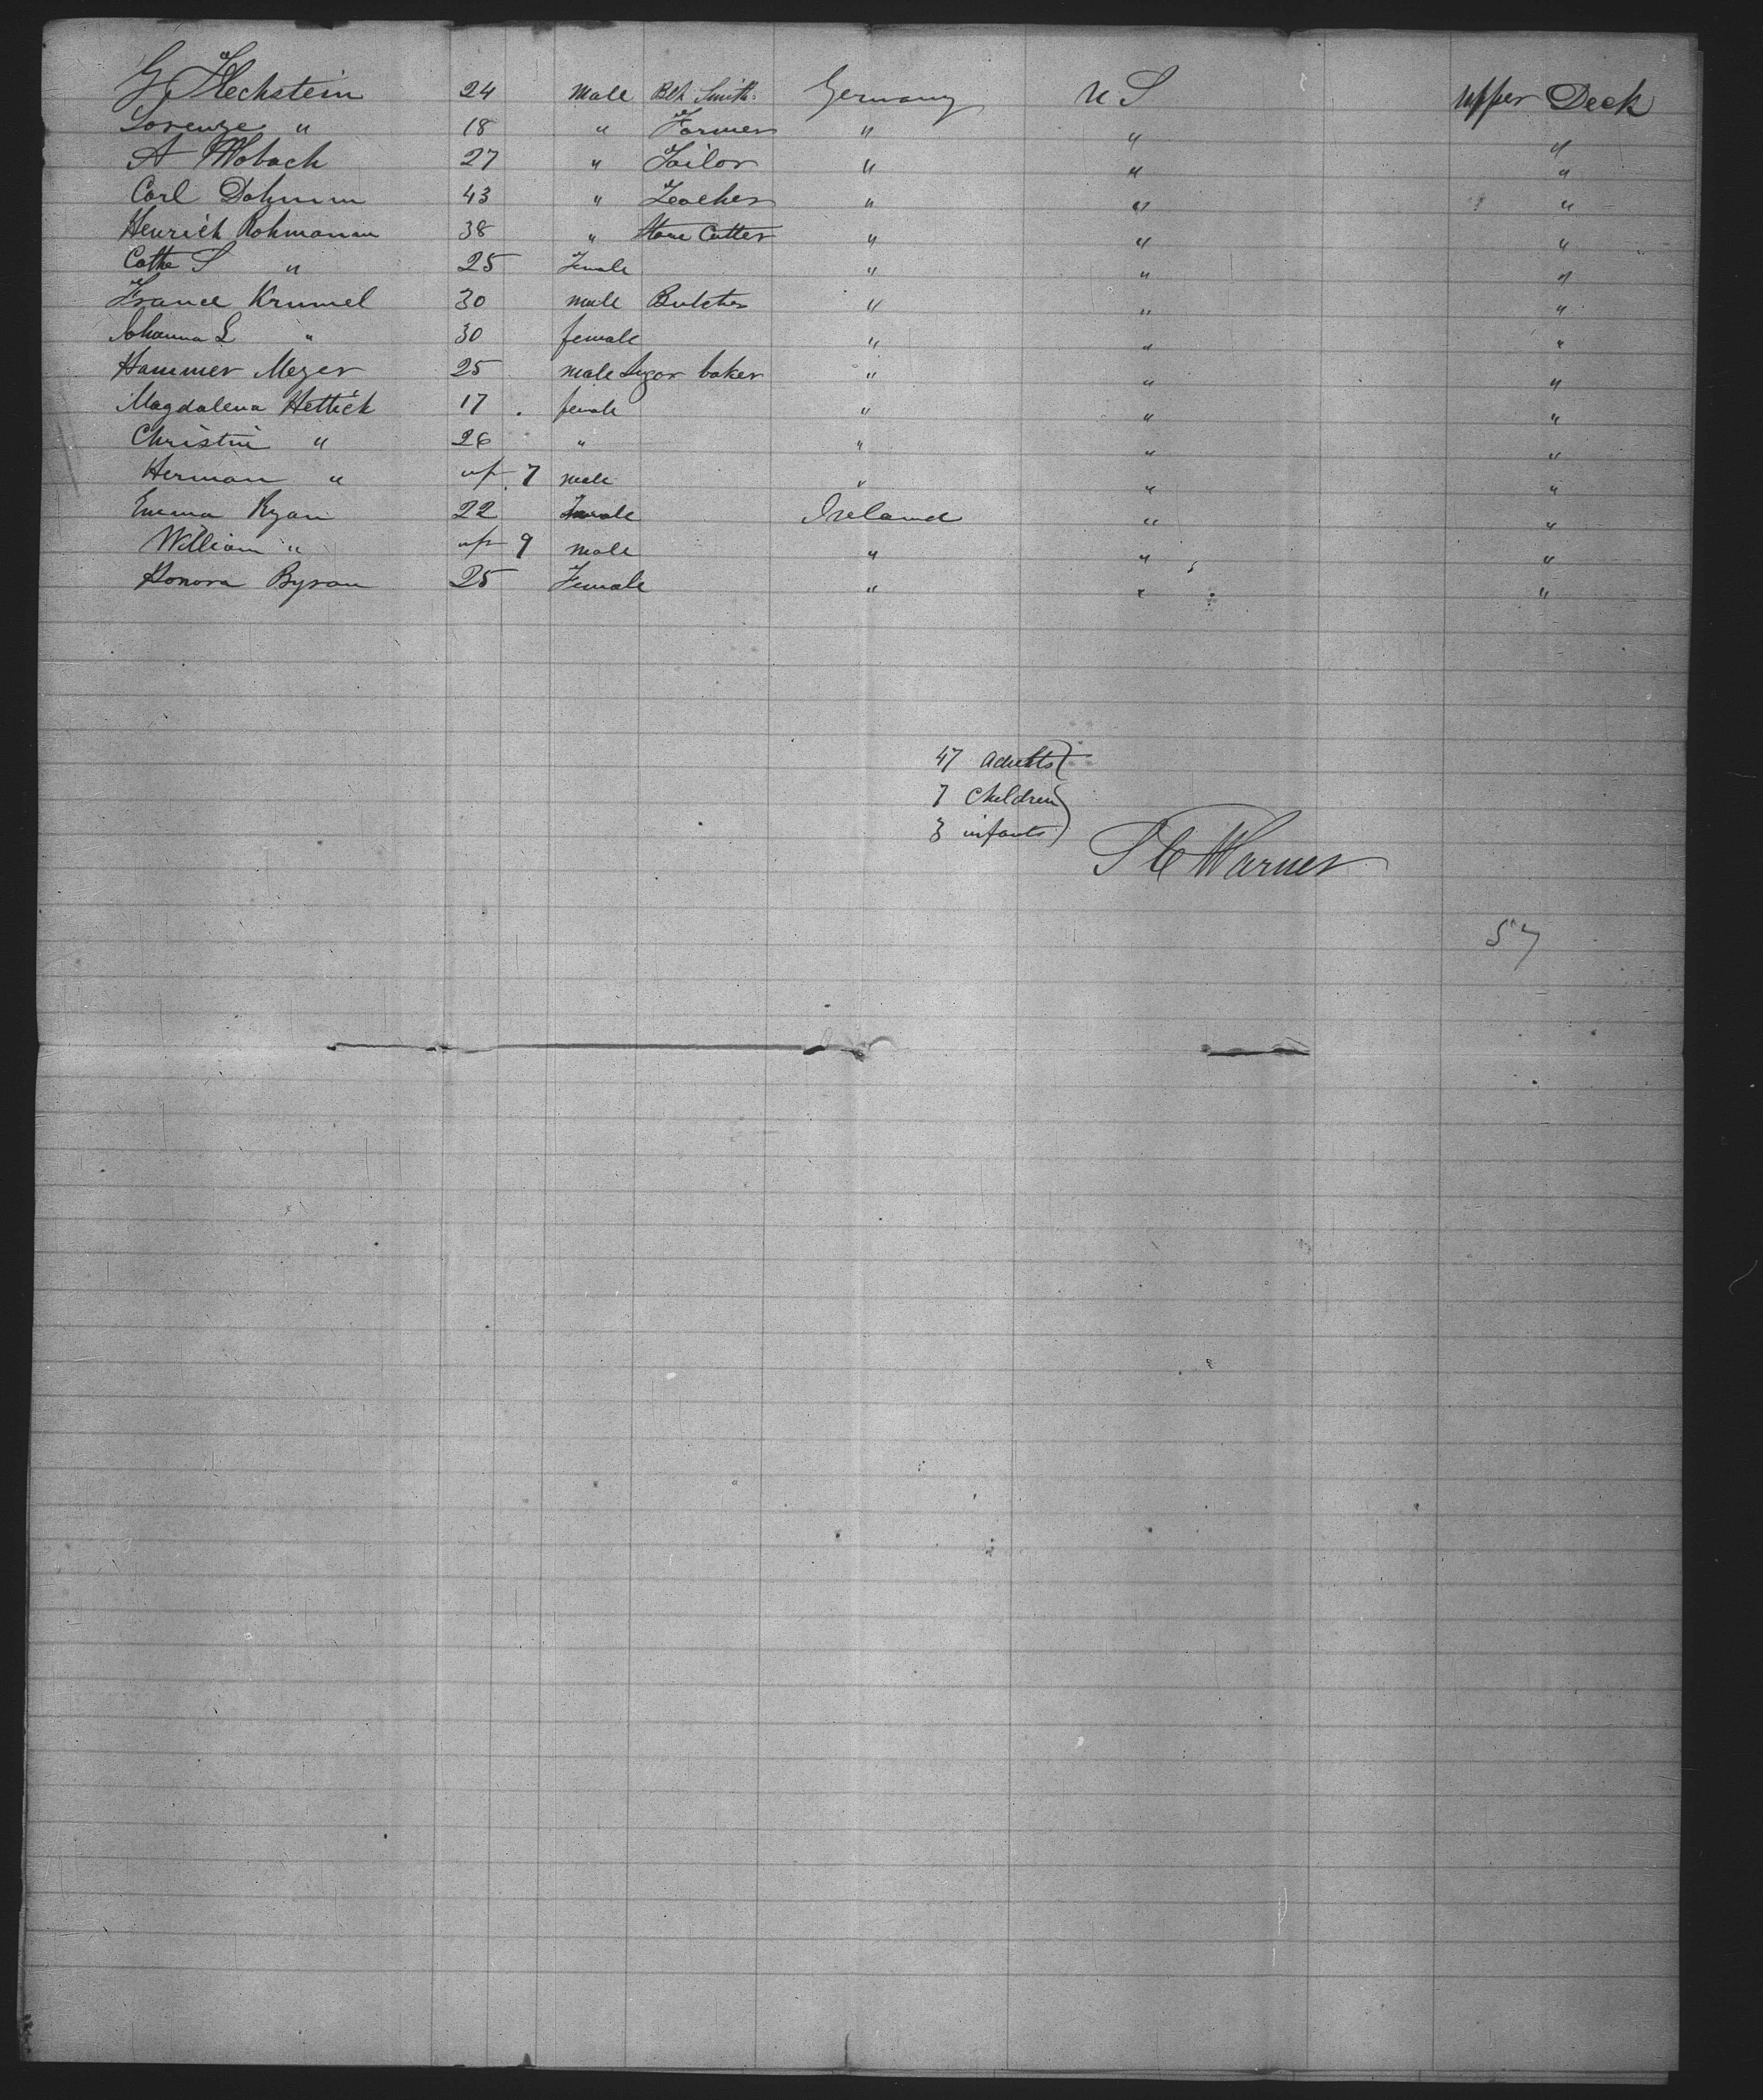 G Flechstein 24 male Blk Smith Germany U S upper Deck
Lorenze " 18 " Farmer " " "
A Wobach 27 " Tailor " " "
Carl Dahmm 43 " Teacher " " "
Henrich Rohmanm 38 " Stone Cutter " " "
Cathe S " 25 Female " " "
France Krumel 30 male Butcher " " "
Johanna L " 30 female " " "
Hammer Meyer 25 male Sugar baker " " "
Magdalena Hettick 17 female " " "
Christin " 26 " " " "
Herman " up 7 male " " "
Emma Ryan 22 Female Ireland " "
William " up 9 male " " "
Honora Byran 25 Female " " "
47 adults
7 Children
3 infants
S C Warner
57